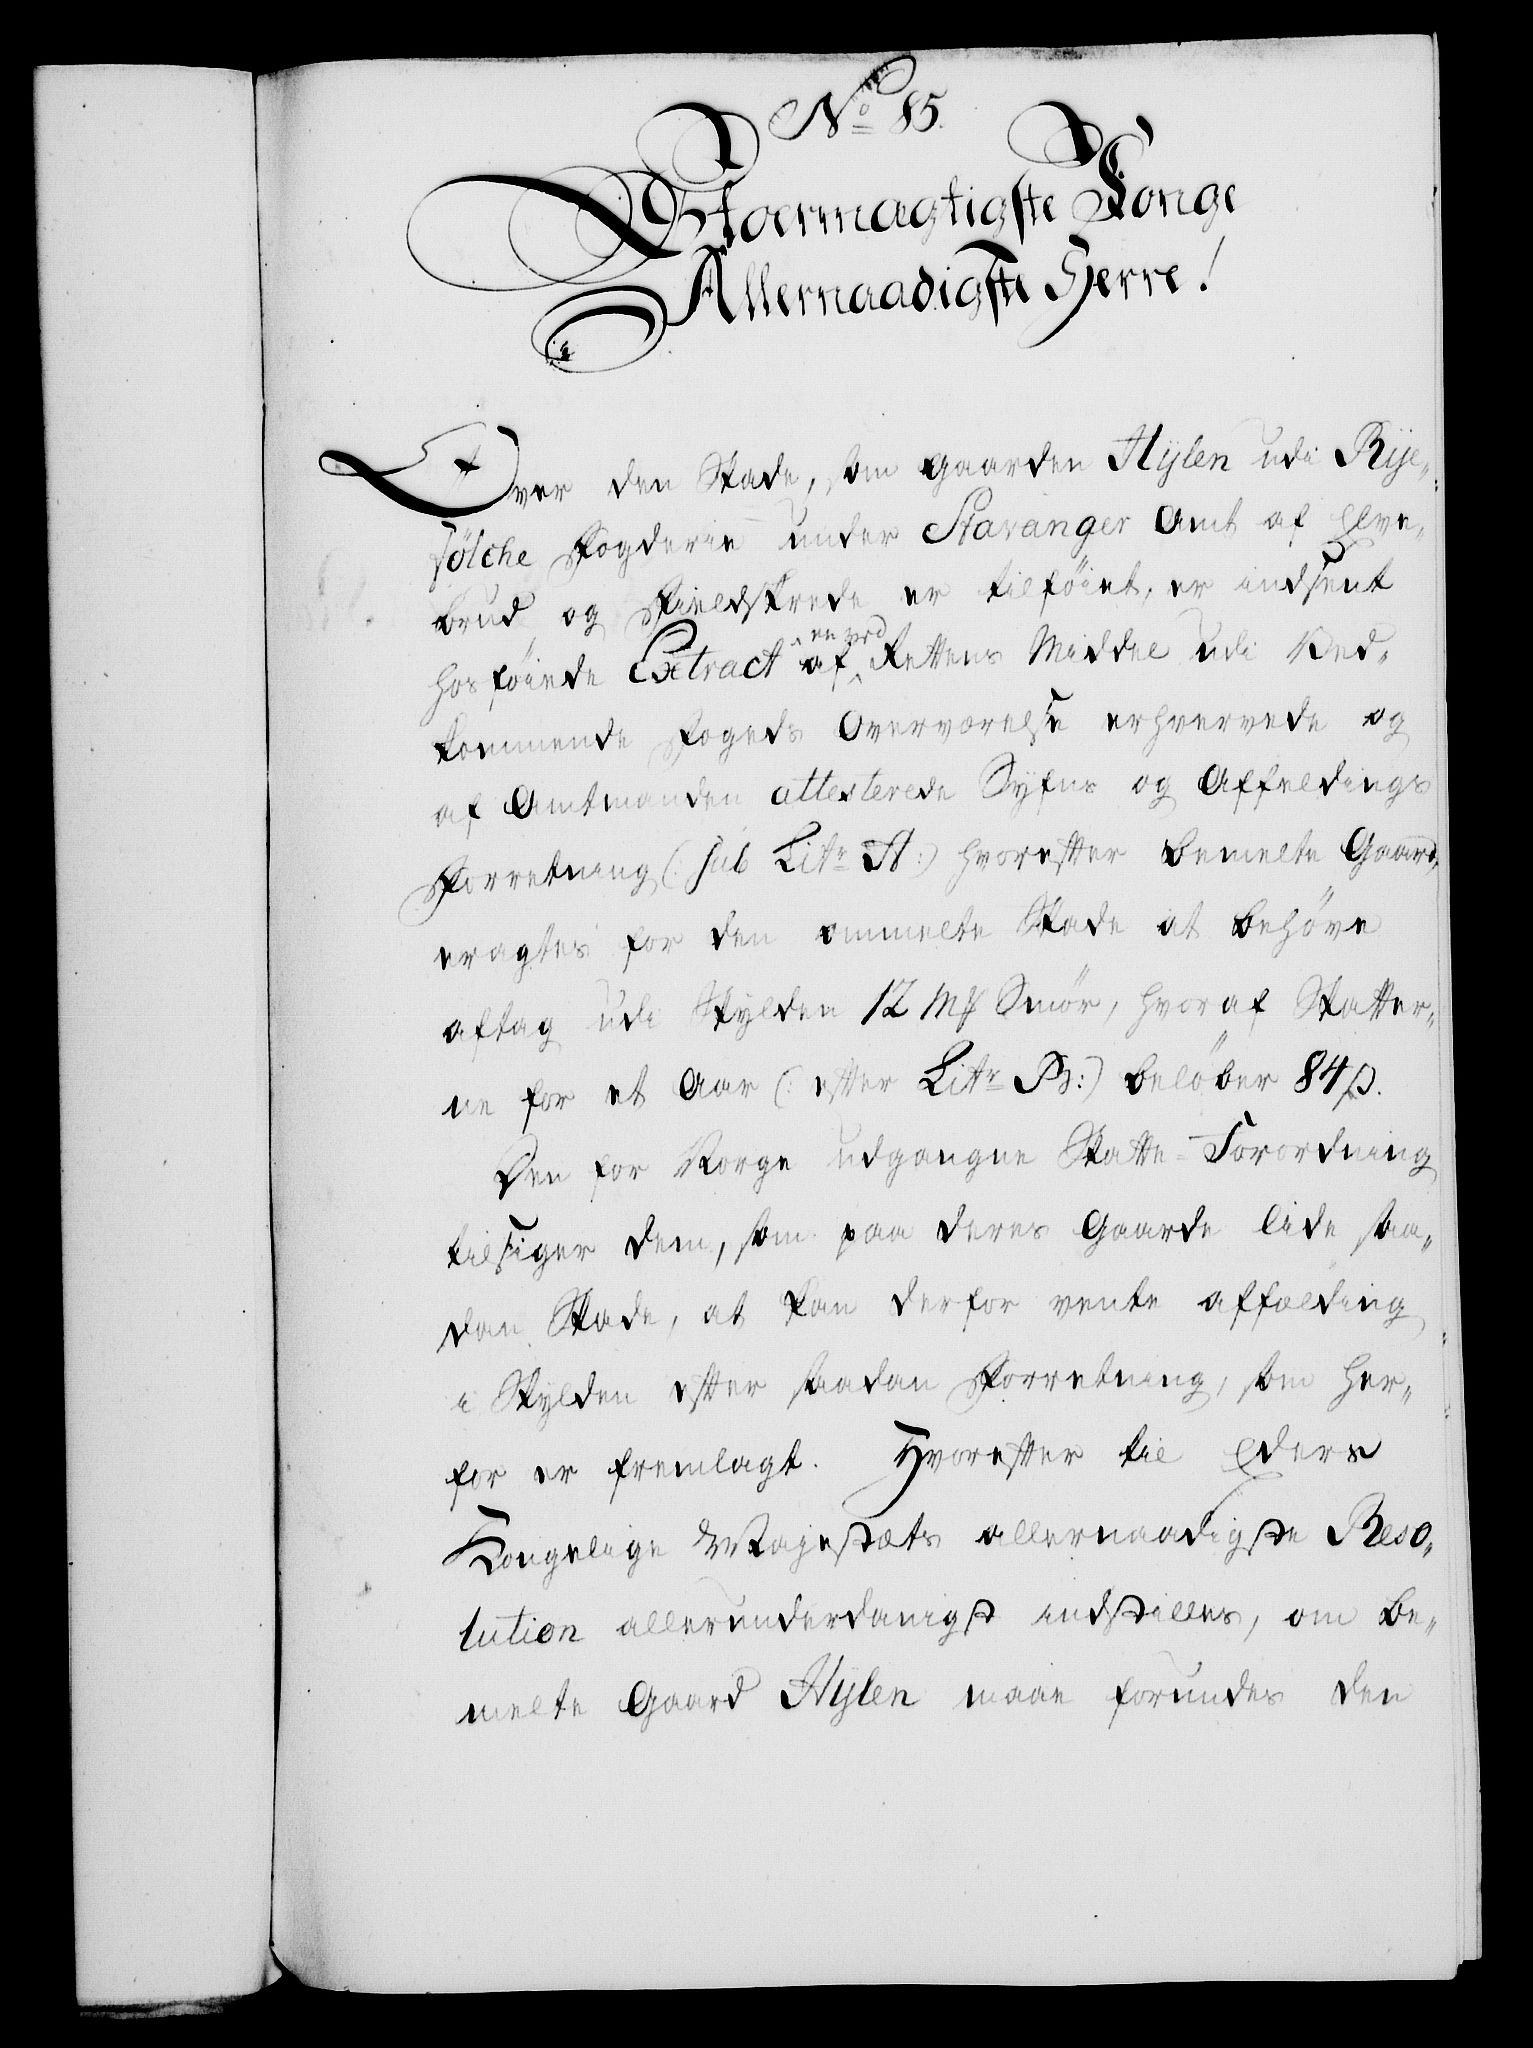 No 85.
Stoermagtigste Konge
Allernaadigste Herre!
Over den Skade, som gaarden Hylen udi Rye-
fölche Fogderie under Stavanger Amt af Elve-
brud og Fieldskrede er tilföiet, er indsent
hosföiede Extract af en ved Rettens Middel udi Ved-
kommende Fogeds Overværelse erhvervede og
af Amtmanden attesterede Syfns og Affeldings
Forretning (: sub Litr A :) hvorefter bemelte Gaard,
eragtes for den ommelte Skade at behöve
aftag udi Skylden 12 mk Smör, hvoraf Skatter-
ne for et Aar (: efter Litr B :) belöber 84 s.
Den for Norge udgangne Skatte-Forordning
tilsiger dem, som paa deres Gaarde lide saa-
dan Skade, at kan derfor vente affælding
i Skylden efter saadan Forretning, som her-
for er fremlagt. Hvorefter til Eders
Kongelige Majestæts allernaadigste Reso-
lution allerunderdanigst indstilles, om be-
melte Gaard Hylen maae forundes den